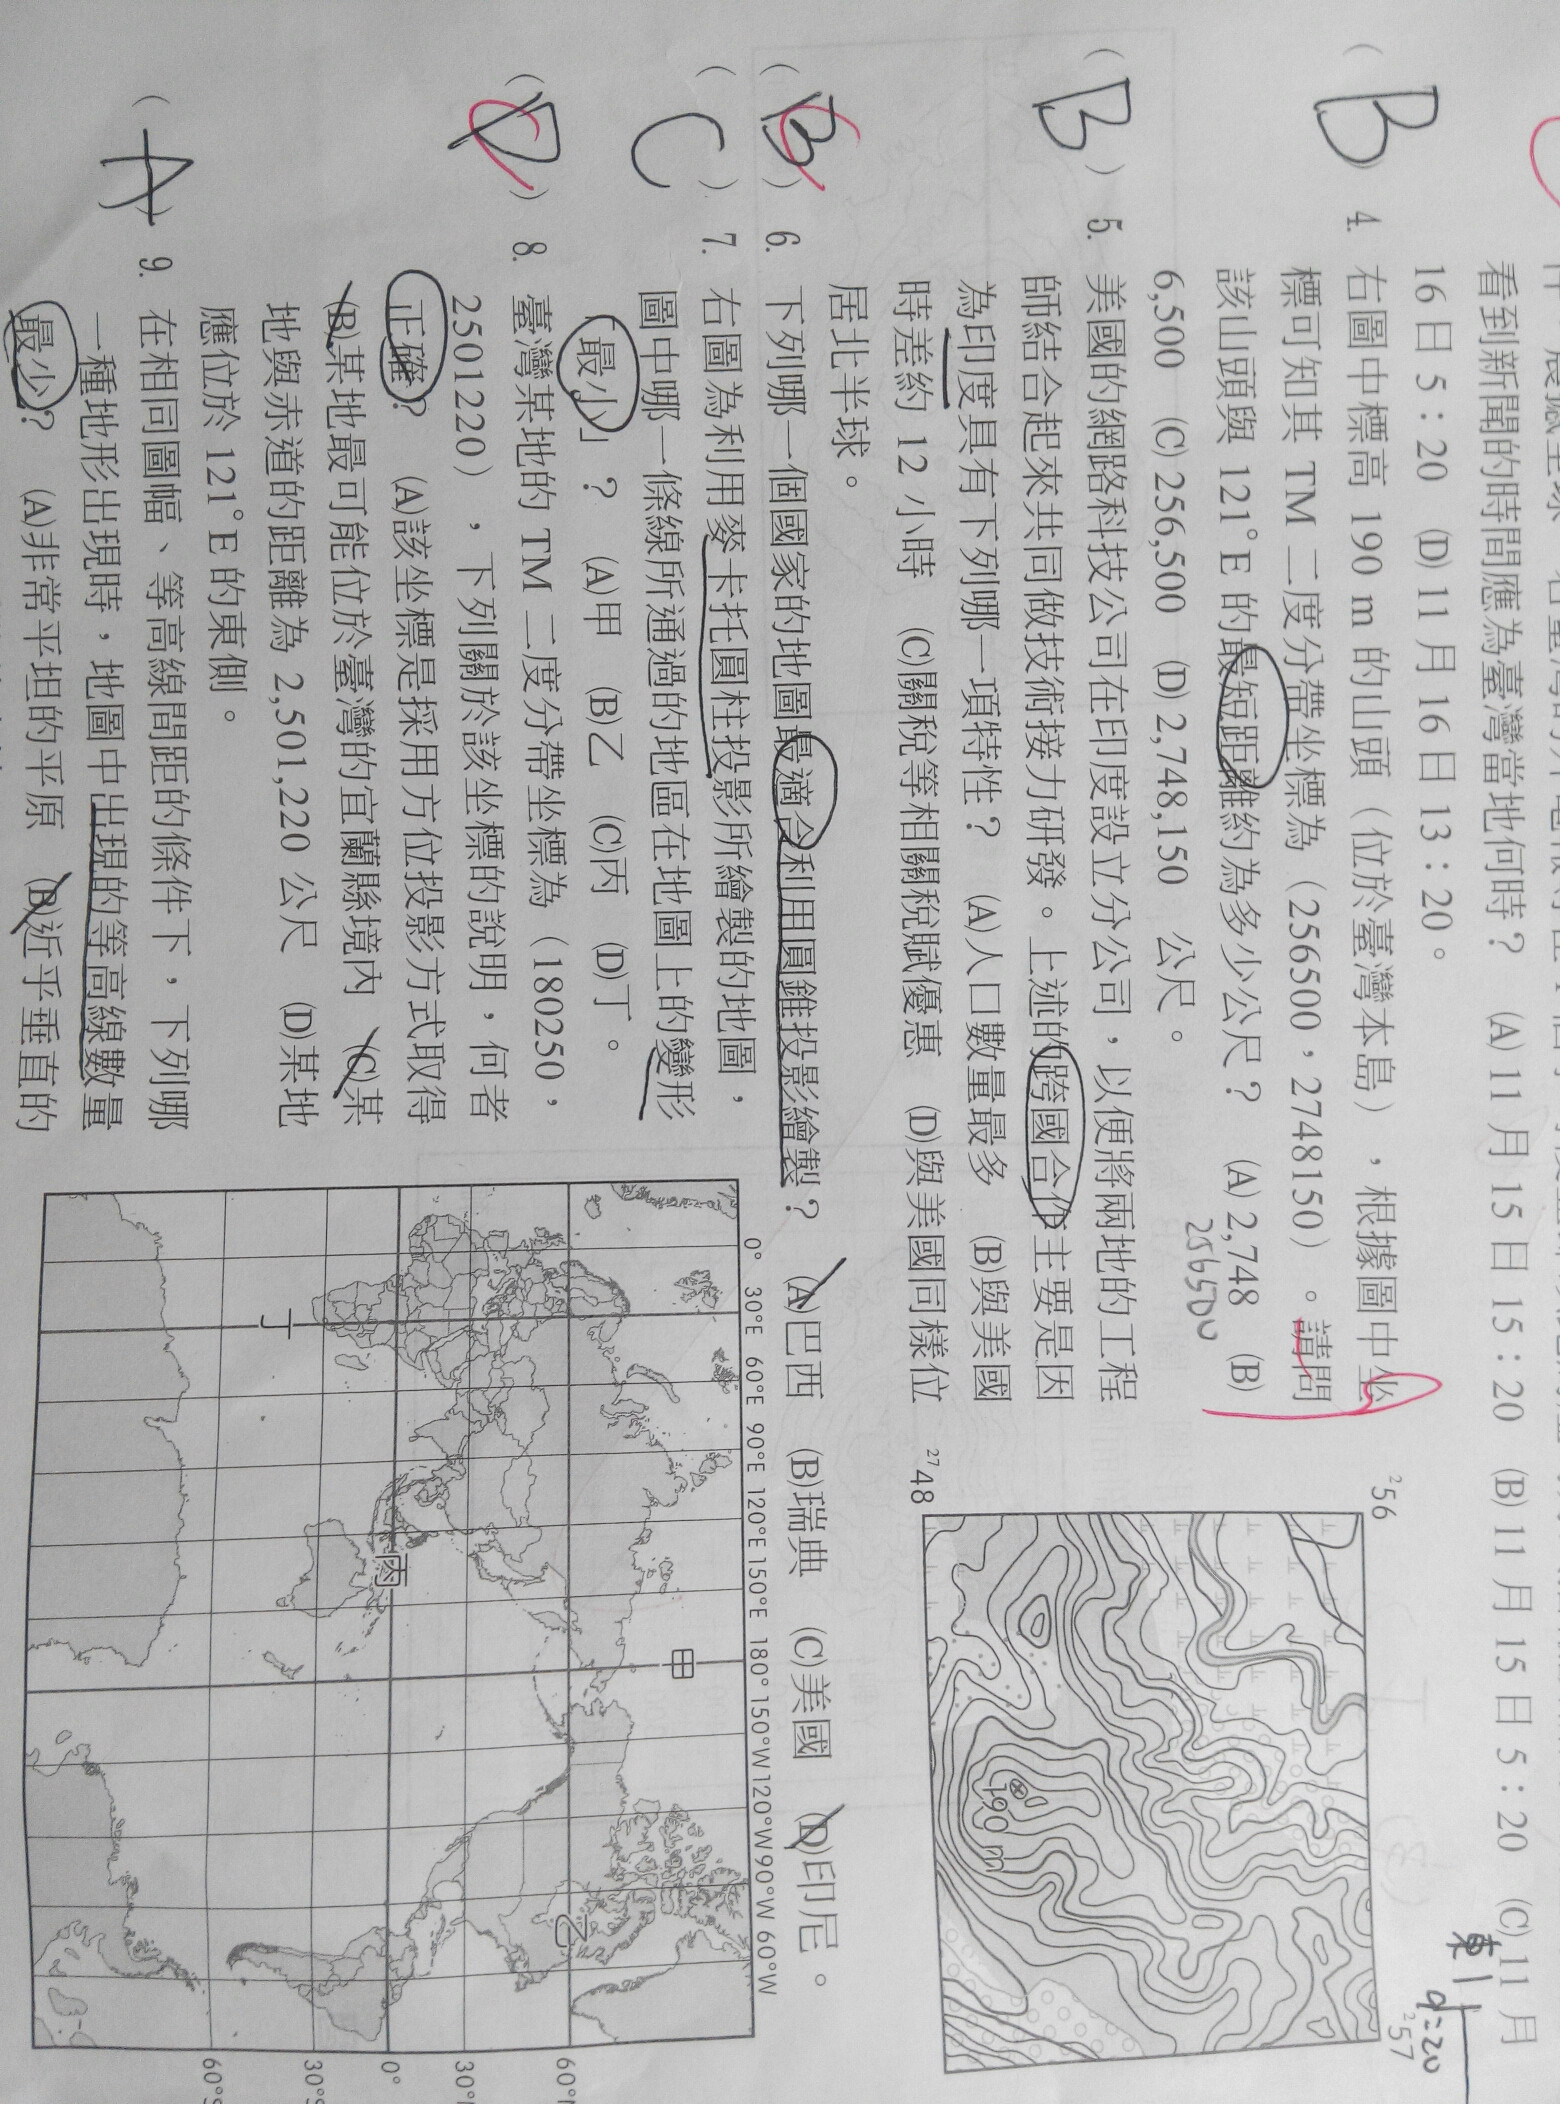 看到新聞的時間應為臺灣當地何時？ (A) 11 月 15 日 15：20 (B) 11 月 15 日 5：20 (C) 11 月
16 日 5：20 (D) 11 月 16 日 13：20。
(B) 4. 右圖中標高 190 m 的山頭（位於臺灣本島），根據圖中坐
標可知其 TM 二度分帶坐標為（256500，2748150）。請問
該山頭與 121°E 的最短距離約為多少公尺？ (A) 2,748 (B)
6,500 (C) 256,500 (D) 2,748,150 公尺。
256500
(B) 5. 美國的網路科技公司在印度設立分公司，以便將兩地的工程
師結合起來共同做技術接力研發。上述的跨國合作主要是因
為印度具有下列哪一項特性？ (A)人口數量最多 (B)與美國
時差約 12 小時 (C)關稅等相關稅賦優惠 (D)與美國同樣位
居北半球。
(B C) 6. 下列哪一個國家的地圖最適合利用圓錐投影繪製？ (A)巴西 (B)瑞典 (C)美國 (D)印尼。
(C) 7. 右圖為利用麥卡托圓柱投影所繪製的地圖，
圖中哪一條線所通過的地區在地圖上的變形
「最小」？ (A)甲 (B)乙 (C)丙 (D)丁。
(D C) 8. 臺灣某地的 TM 二度分帶坐標為（180250，
2501220），下列關於該坐標的說明，何者
正確？ (A)該坐標是採用方位投影方式取得
(B)某地最可能位於臺灣的宜蘭縣境內 (C)某
地與赤道的距離為 2,501,220 公尺 (D)某地
應位於 121°E 的東側。
(A) 9. 在相同圖幅、等高線間距的條件下，下列哪
一種地形出現時，地圖中出現的等高線數量
最少？ (A)非常平坦的平原 (B)近乎垂直的
東
9:20
256
257
2748
190 m
0° 30°E 60°E 90°E 120°E 150°E 180° 150°W 120°W 90°W 60°W
甲
乙
丙
丁
60°N
30°N
0°
30°S
60°S